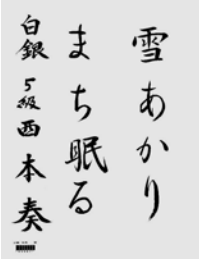 雪あかり
まち眠る
白銀 5級 西本奏